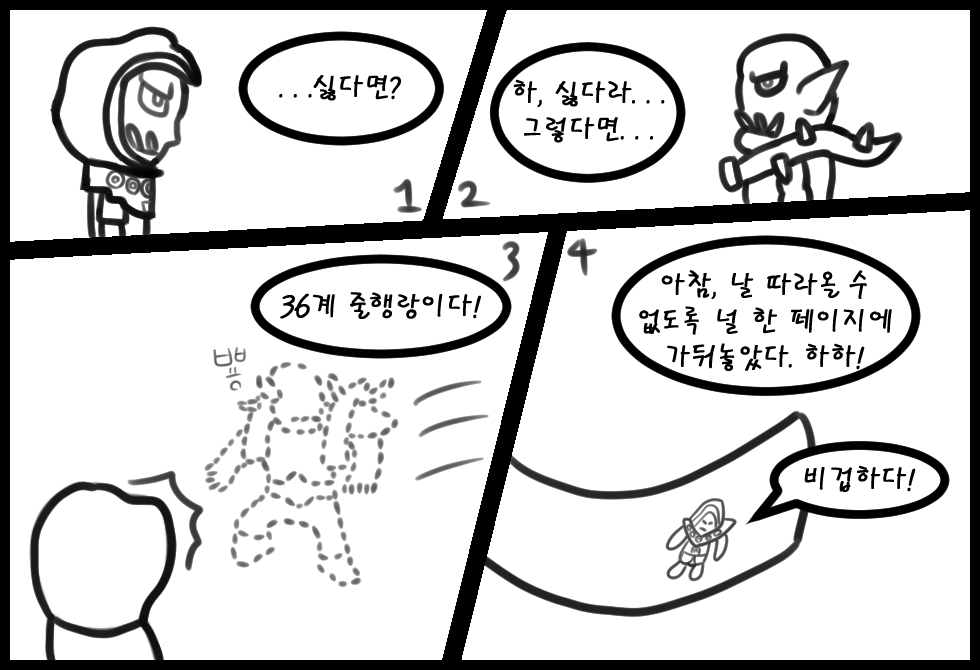 ...싫다면?
1
하, 싫다라...
그렇다면...
2
36계 줄행랑이다!
3
뿅
4
아참, 날 따라올 수
없도록 널 한 페이지에
가둬놓았다. 하하!
비겁하다!